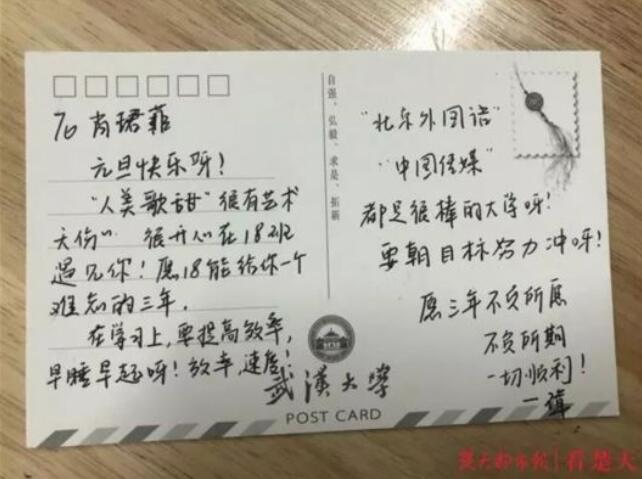 To 肖珺菲
元旦快乐呀!
"人美歌甜"很有艺术
天份~ 很开心在18班
遇见你!愿18能给你一个
难忘的三年.
在学习上,要提高效率,
早睡早起呀!效率,速度!
自强、弘毅、求是、拓新
"北京外国语"
"中国传媒"
都是很棒的大学呀!
要朝目标努力冲呀!
愿三年不负所愿
不负所期
一切顺利!
武漢大學
POST CARD
楚天都市报|看楚天